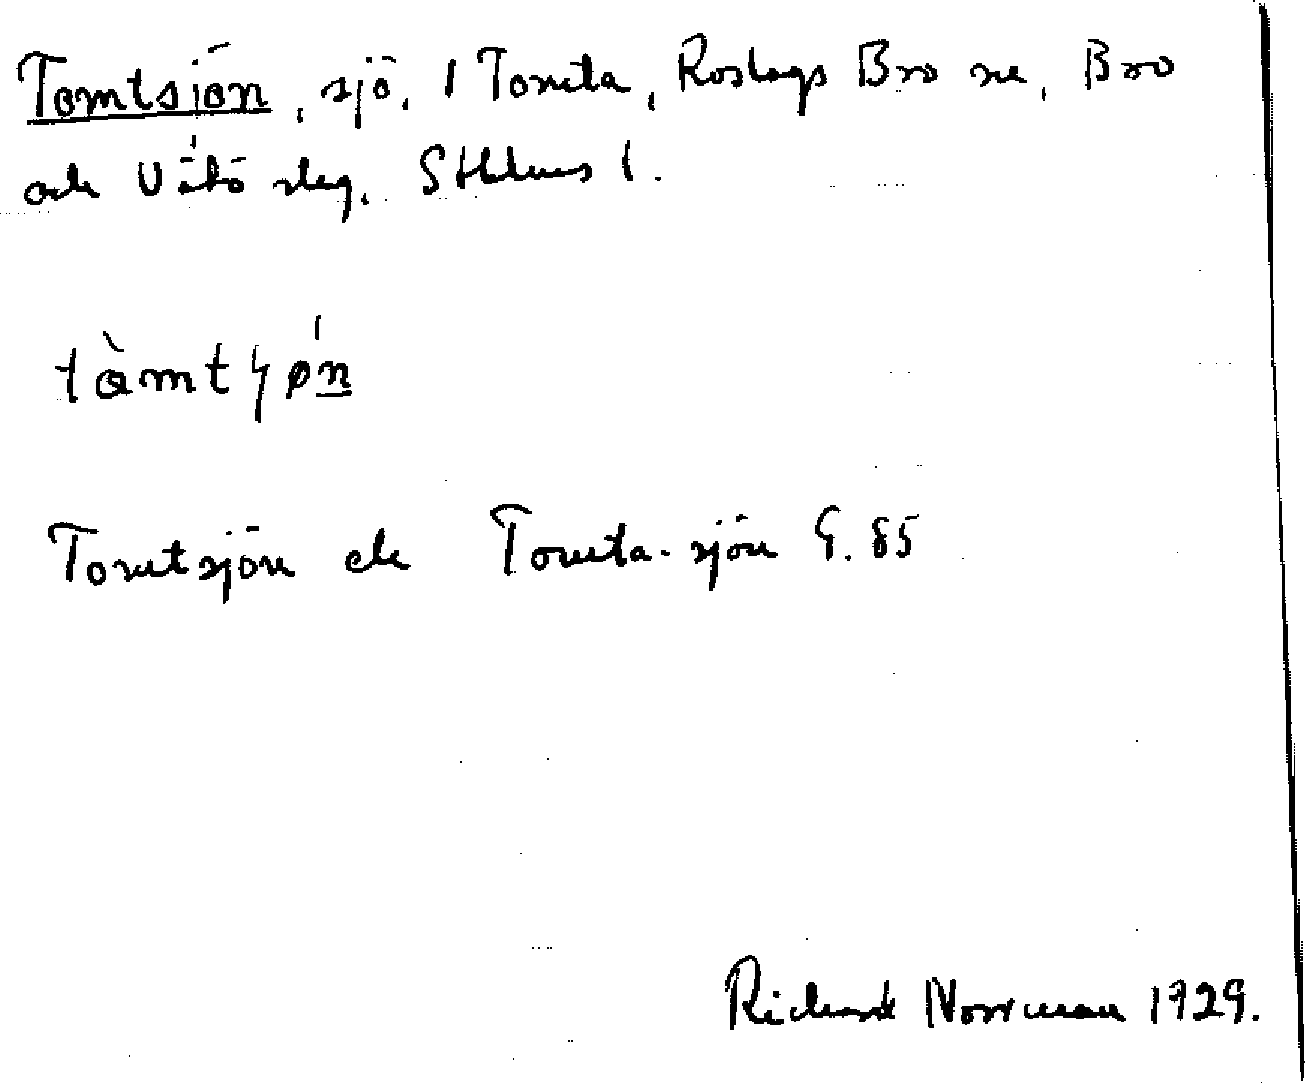 Tomtsjön, sjö, 1 Tomta, Roslags Bro sn, Bro
och Vätö skg, Sthlms l.
tàmtʃǿn
Tomtsjön el. Tomta-sjön G. 85
Richard Norrman 1929.